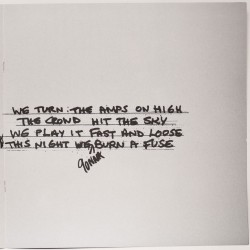 WE TURN: THE AMPS ON HIGH
THE CROWD HIT THE SKY
WE PLAY IT FAST AND LOOSE
THIS NIGHT WE BURN A FUSE